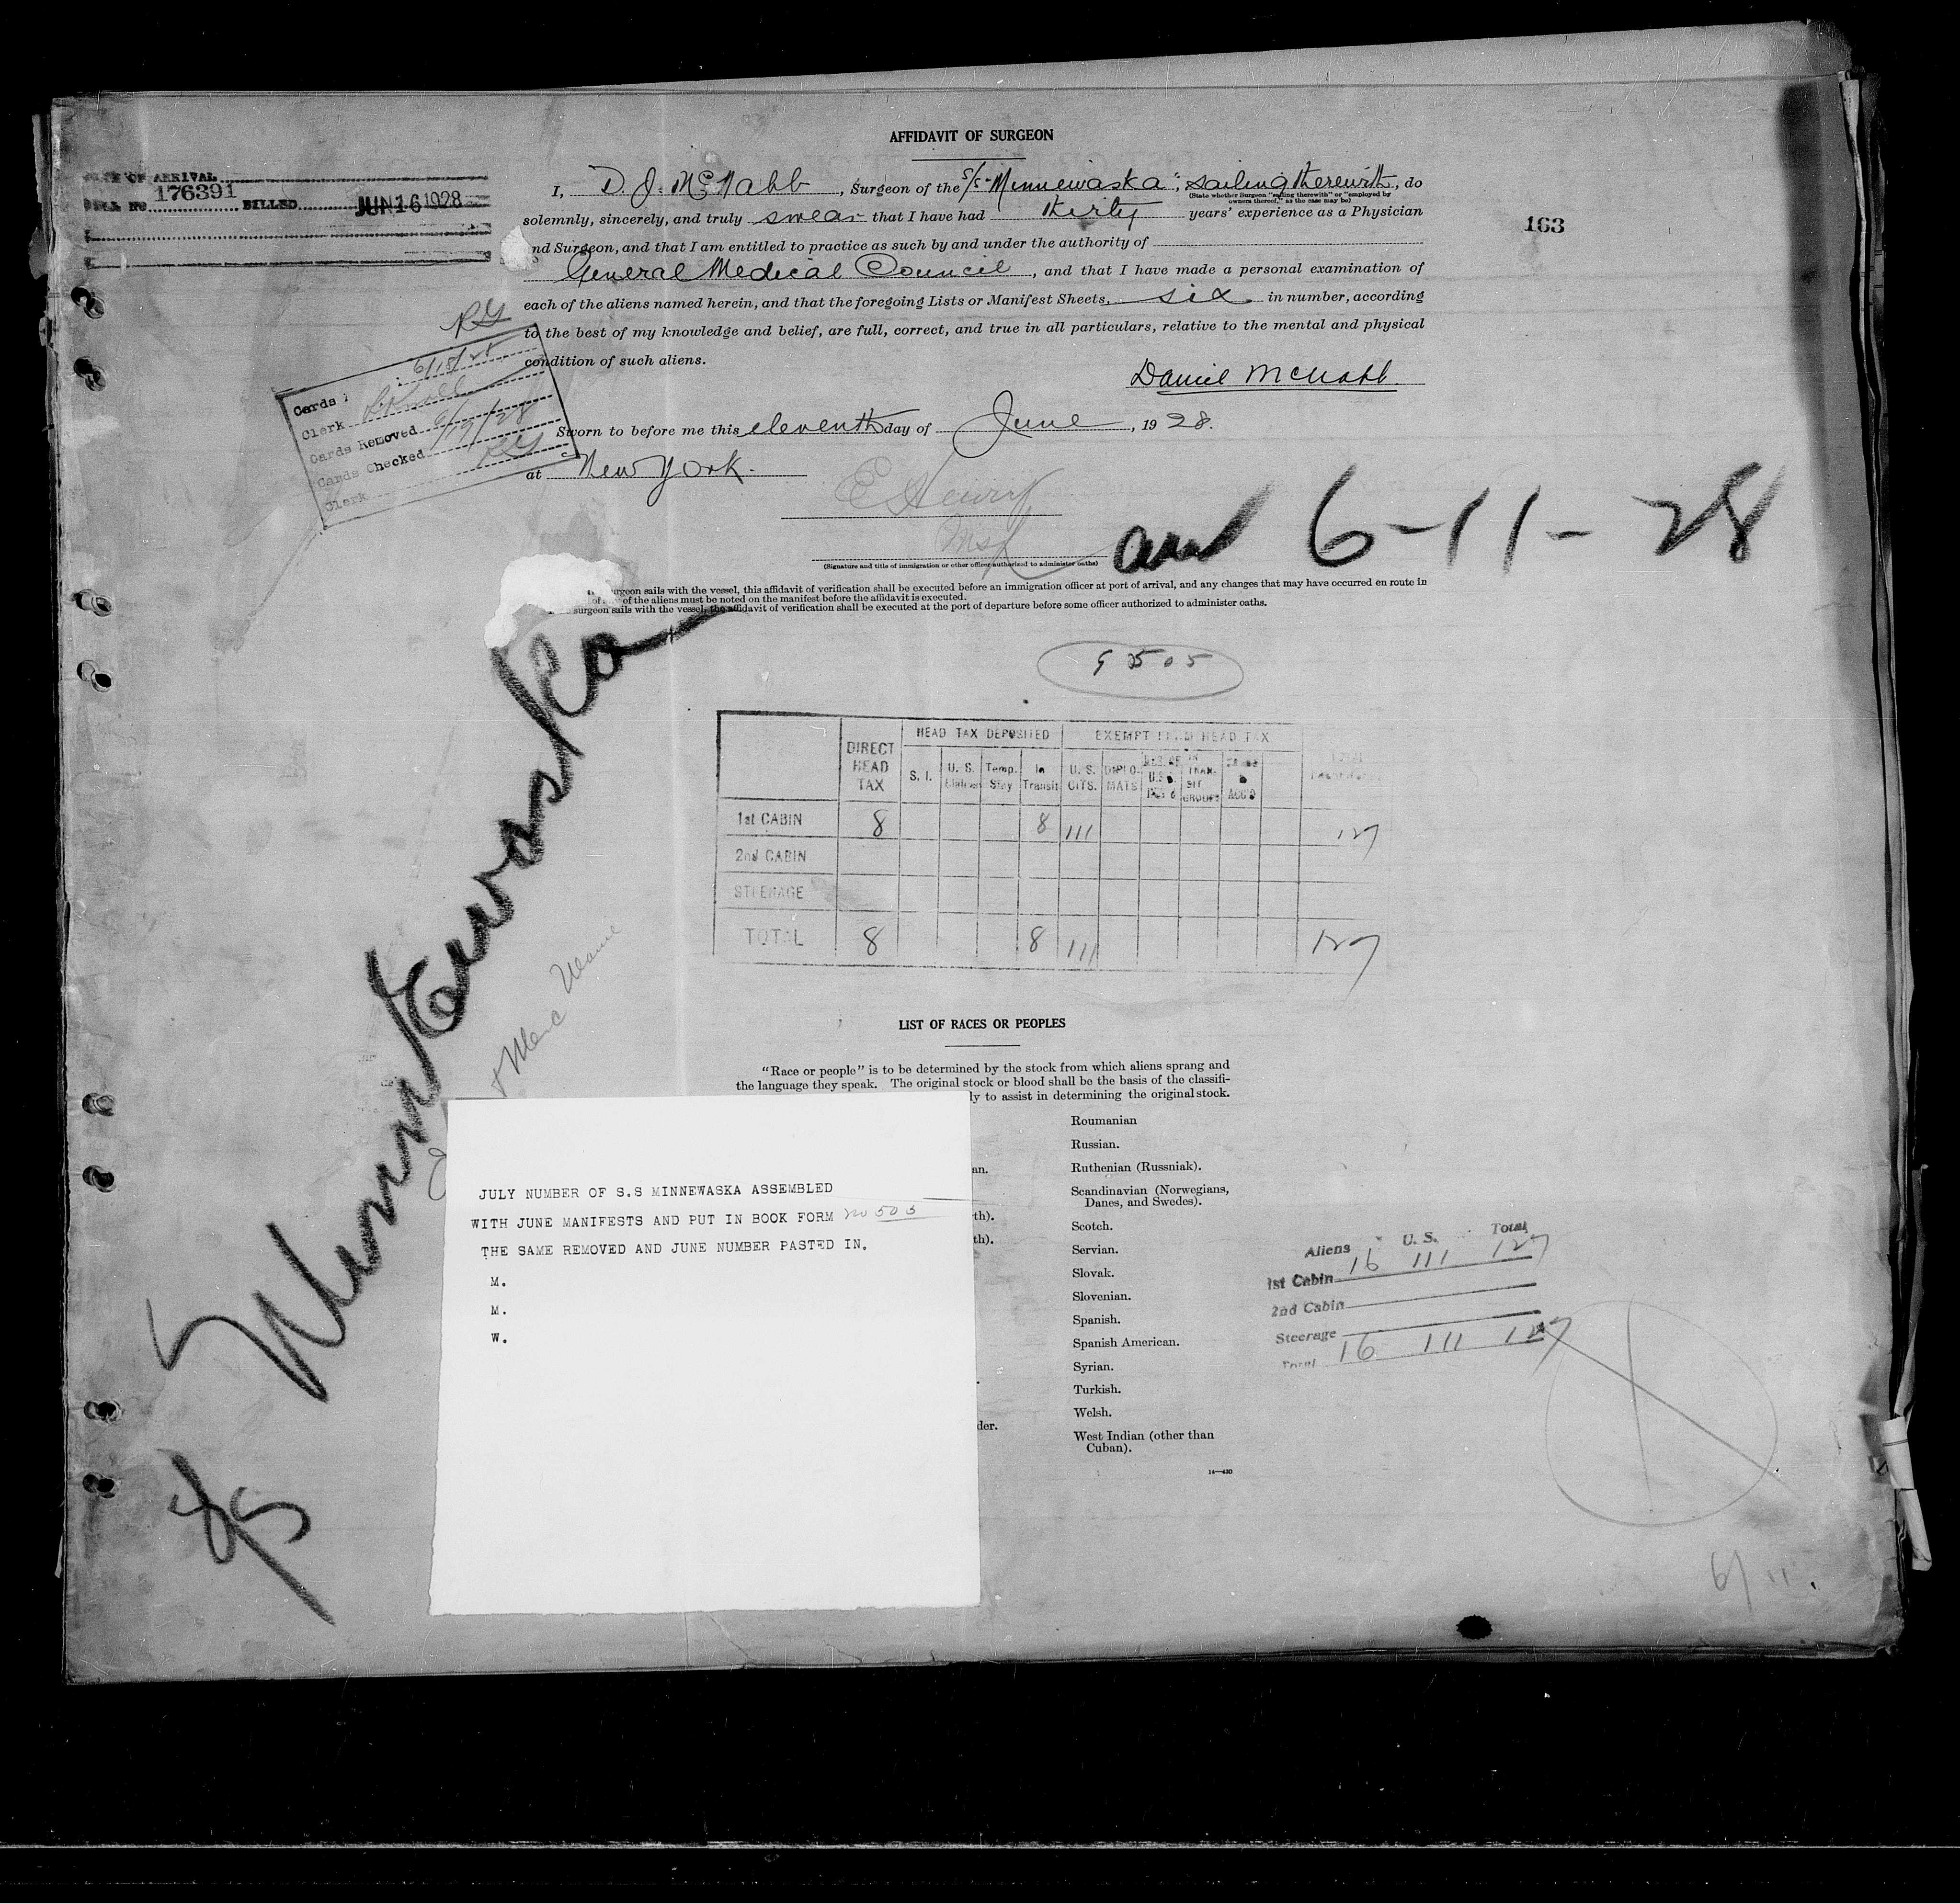 AFFIDAVIT OF SURGEON
OF ARRIVAL
176391
BILLED JUN 16 1928
163
I, D. J. McNabb, Surgeon of the S/S "Minnewaska", sailing therewith, do
(State whether Surgeon "sailing therewith" or "employed by
owners thereof," as the case may be)
solemnly, sincerely, and truly swear that I have had thirty years' experience as a Physician
nd Surgeon, and that I am entitled to practice as such by and under the authority of
General Medical Council, and that I have made a personal examination of
each of the aliens named herein, and that the foregoing Lists or Manifest Sheets, six in number, according
to the best of my knowledge and belief, are full, correct, and true in all particulars, relative to the mental and physical
condition of such aliens.
Daniel McNabb.
Sworn to before me this eleventh day of June, 1928.
at New York.
(Signature and title of immigration or other officer authorized to administer oaths)
Cards
Clerk
Cards Removed 6/19/28
Cards Checked
Clerk
6-11-28
urgeon sails with the vessel, this affidavit of verification shall be executed before an immigration officer at port of arrival, and any changes that may have occurred en route in
of the aliens must be noted on the manifest before the affidavit is executed.
surgeon sails with the vessel, the affidavit of verification shall be executed at the port of departure before some officer authorized to administer oaths.
Minnewaska
9505
HEAD TAX DEPOSITED EXEMPT FROM HEAD TAX
DIRECT HEAD TAX S. I. U. S. Temp. Stay In Transit U. S. CITS. DIPLO-MATS IN TRAN-SIT GROUPS
1st CABIN 8 8 111 127
2nd CABIN
STEERAGE
TOTAL 8 8 111 127
LIST OF RACES OR PEOPLES
"Race or people" is to be determined by the stock from which aliens sprang and
the language they speak. The original stock or blood shall be the basis of the classifi-
ly to assist in determining the original stock.
Roumanian
Russian.
an.
Ruthenian (Russniak).
Scandinavian (Norwegians,
Danes, and Swedes).
th).
Scotch.
th).
Servian.
Slovak.
Slovenian.
Spanish.
Spanish American.
Syrian.
Turkish.
Welsh.
der.
West Indian (other than
Cuban).
14—430
JULY NUMBER OF S.S MINNEWASKA ASSEMBLED
WITH JUNE MANIFESTS AND PUT IN BOOK FORM no 503
THE SAME REMOVED AND JUNE NUMBER PASTED IN.
M.
M.
W.
Aliens U. S. Total
1st Cabin 16 111 127
2nd Cabin
Steerage
Total 16 111 127
6/11